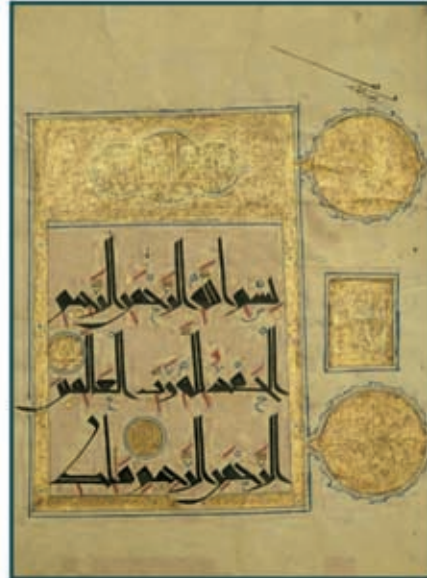 بِسْمِ اللهِ الرَّحْمٰنِ الرَّحِيمِ
الْحَمْدُ لِلّٰهِ رَبِّ الْعَالَمِينَ
الرَّحْمٰنِ الرَّحِيمِ مٰلِكِ